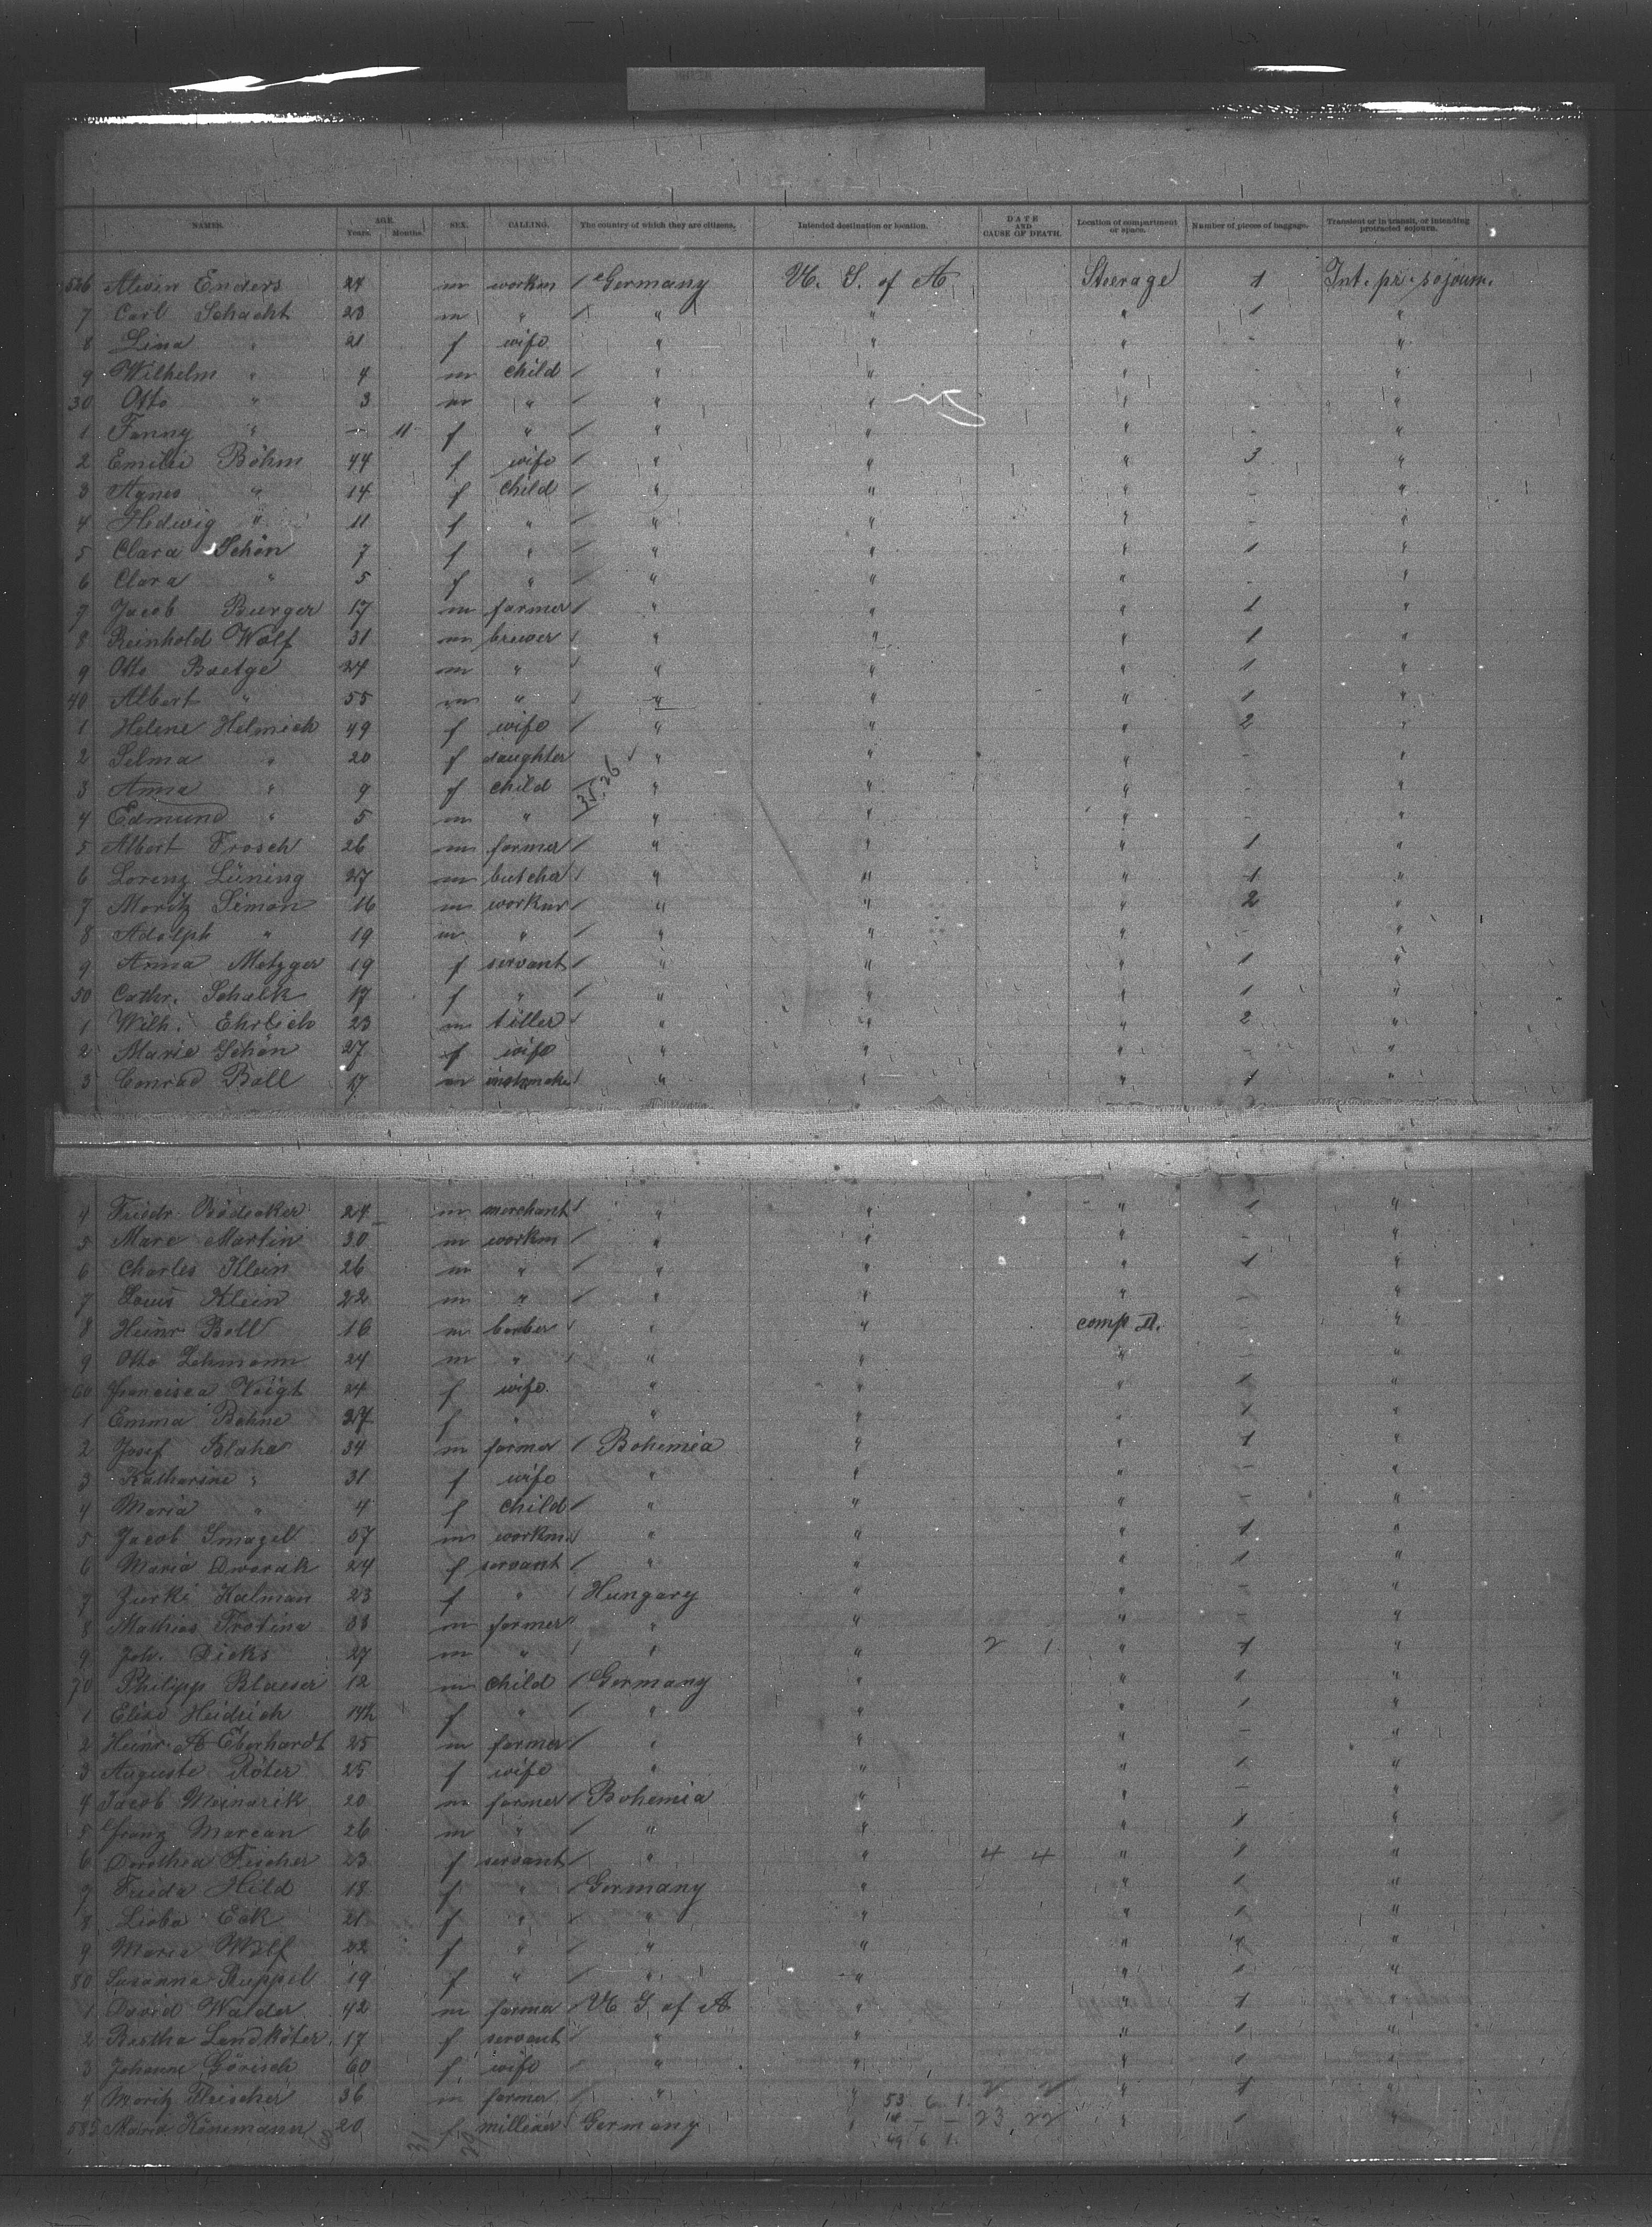 NAMES. AGE. Years. Months. SEX. CALLING. The country of which they are citizens. Intended destination or location. DATE AND CAUSE OF DEATH. Location of compartment or space. Number of pieces of baggage. Transient or in transit, or intending protracted sojourn.
526 Alwin Enders 24 m workm / Germany U. S. of A Steerage 1 Int. pr. sojourn.
7 Carl Schacht 23 m " / " " " 1 "
8 Lina " 21 f wife " " " - "
9 Wilhelm " 4 m child / " " " - "
30 Otto " 3 m " / " " " - "
1 Fanny " - 11 f " / " " " - "
2 Emilie Böhm 44 f wife / " " " 3 "
3 Agnes " 14 f child / " " " - "
4 Hedwig " 11 f " / " " " - "
5 Clara Schön 7 f " / " " " 1 "
6 Clara " 5 f " / " " " - "
7 Jacob Burger 17 m farmer / " " " 1 "
8 Reinhold Wolf 31 m brewer / " " " 1 "
9 Otto Baetge 24 m " / " " " 1 "
40 Albert " 55 m " / " " " 1 "
1 Helene Helmich 49 f wife / " " " 2 "
2 Selma " 20 f daughter / " " " - "
3 Anna " 9 f child / " " " - "
35,26
4 Edmund " 5 m " / " " " - "
5 Albert Frosch 26 m farmer / " " " 1 "
6 Lorenz Lüning 27 m butcher / " " " 1 "
7 Moritz Simon 16 m worker / " " " 2 "
8 Adolph " 19 m " / " " " - "
9 Anna Metzger 19 f servant / " " " 1 "
50 Cathr. Schalk 17 f " / " " " 1 "
1 Wilh. Ehrlich 23 m tiller / " " " 2 "
2 Marie Schön 27 f wife " " " - "
3 Conrad Boll 17 m / " " " 1 "
4 Friedr. Bödecker 24 m merchant / " " " 1 "
5 Marc Martin 30 m workm / " " " - "
6 Charles Klein 26 m " / " " " 1 "
7 Louis Klein 22 m " / " " " - "
8 Heinr Boll 16 m barber / " " comp II. - "
9 Otto Lehmann 24 m " / " " " - "
60 Francisca Voigt 24 f wife " " " 1 "
1 Emma Bohne 27 f " " " " 1 "
2 Josef Blaha 34 m farmer / Bohemia " " 1 "
3 Katharine " 31 f wife " " " - "
4 Maria " 4 f child / " " " - "
5 Jacob Smazel 57 m workm / " " " 1 "
6 Maria Dworak 24 f servant / " " " 1 "
7 Kalman 23 f " / Hungary " " - "
8 Mathias Frotina 38 m farmer / " " " - "
9 Joh. Dicks 27 m " / " " 2 1 " 1 "
70 Philipp Blaeser 12 m child / Germany " " 1 "
1 Elise Heidrich f " / " " " 1 "
2 Heinr. A Eberhardt 25 m farmer / " " " - "
3 Auguste Röter 25 f wife " " " 1 "
4 Jacob Meinarik 20 m farmer / Bohemia " " - "
5 Franz Marean 26 m " / " " " 1 "
6 Dorothea Fischer 23 f servant / " " 4 4 " 1 "
7 Frieda Hild 18 f " / Germany " " 1 "
8 Lioba Eck 21 f " / " " " 1 "
9 Maria Wolf 22 f " / " " " 1 "
80 Susanna Ruppel 19 f " / " " " 1 "
1 David Walder 42 m farmer / U S of A " " 1 "
2 Bertha Landköter 17 f servant / " " " 1 "
3 Johanne Görisch 60 f wife / " " " 1 "
4 Moritz Fleischer 36 m farmer / " " 2 2 " 1 "
53 6 1.
585 Maria Hönemann 20 f milliner / Germany " 23 22 " 1 "
49 6 1.
60 31 29